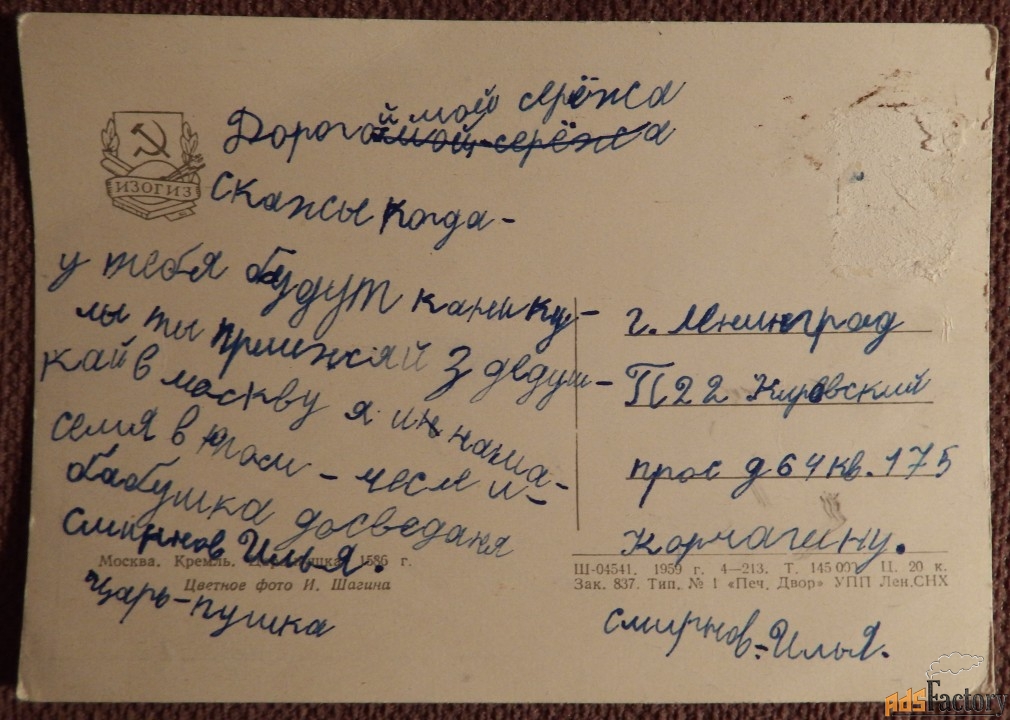 ИЗОГИЗ
Дорогой мой серёжа
мой серёжа
скажы когда-
у тебя будут канику-
лы ты приижяй з дедуш-
кай в москву я и наша
семя в том - числе и-
бабушка досведаня
смирнов Илья.
Москва. Кремль. Царь-пушка 1586 г.
Цветное фото И. Шагина
царь-пушка
г. Ленинград
П22 Кировский
прос д 64 кв. 175
Корчагину.
Ш-04541. 1959 г. 4—213. Т. 145 000 Ц. 20 к.
Зак. 837. Тип. № 1 «Печ. Двор» УПП Лен.СНХ
смирнов-Илья.
adsFactory